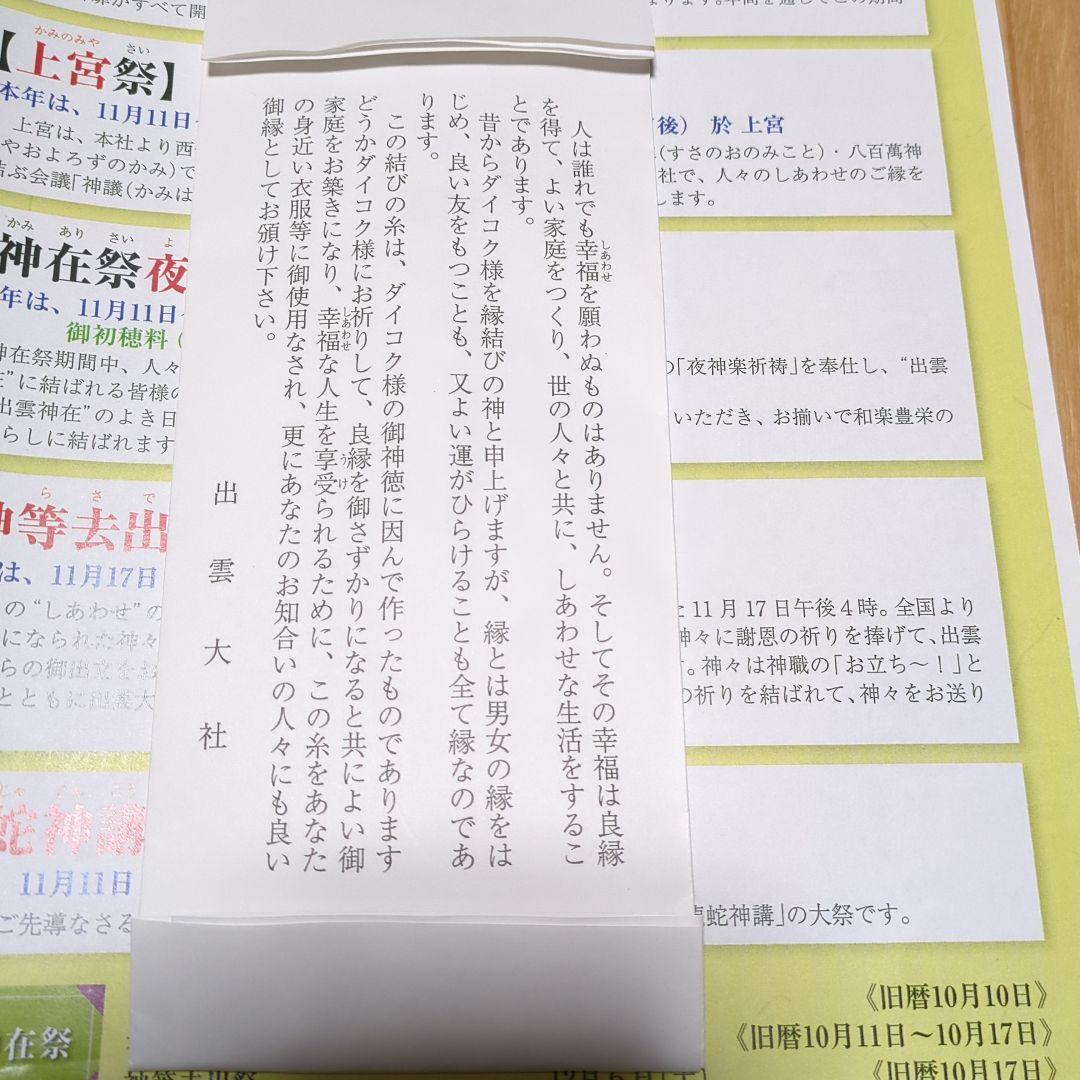 人は誰れでも幸福を願わぬものはありません。そしてその幸福は良縁
しあわせ
を得て、よい家庭をつくり、世の人々と共に、しあわせな生活をするこ
とであります。
昔からダイコク様を縁結びの神と申上げますが、縁とは男女の縁をは
じめ、良い友をもつことも、又よい運がひらけることも全て縁なのであ
ります。
この結びの糸は、ダイコク様の御神徳に因んで作ったものであります
どうかダイコク様にお祈りして、良縁を御さずかりになると共によい御
家庭をお築きになり、幸福な人生を享受られるために、この糸をあなた
しあわせ
うけ
の身近い衣服等に御使用なされ、更にあなたのお知合いの人々にも良い
御縁としてお頒け下さい。
出雲大社
がすべて開
かみのみや さい
【上宮祭】
本年は、11月11日
上宮は、本社より西
やおよろずのかみ)で
結ぶ会議「神議(かみは
後） 於 上宮
(すさのおのみこと)・八百萬神
社で、人々のしあわせのご縁を
します。
かみ あり さい よ
神在祭夜
年は、11月11日
御初穂料
神在祭期間中、人々
に結ばれる皆様の
出雲神在”のよき日
らしに結ばれます
の「夜神楽祈祷」を奉仕し、“出雲
いただき、お揃いで和楽豊栄の
ら さ で
神等去出
は、11月17日
の“しあわせ”の
になられた神々
らの御出立をお
とともに出雲大
た11月17日午後4時。全国より
神々に謝恩の祈りを捧げて、出雲
す。神々は神職の「お立ち〜！」と
の祈りを結ばれて、神々をお送り
蛇神講
11月11日
ご先導なさる
龍蛇神講」の大祭です。
在祭
《旧暦10月10日》
《旧暦10月11日〜10月17日》
神等去出祭
12月6日(土)
《旧暦10月17日》